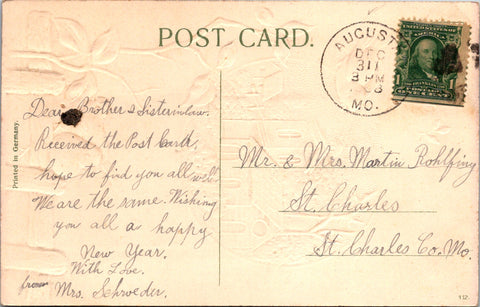 POST CARD.
AUGUST
DEC
31
3 PM
MO.
1
1
Printed in Germany.
Dear Brother & Sisterinlaw.
Received the Post Card.
hope to find you all well
We are the same. Wishing
you all a happy
New Year.
With Love.
from
Mrs. Schroeder.
Mr. & Mrs. Martin Rohlfing
St. Charles
St. Charles Co. Mo.
112